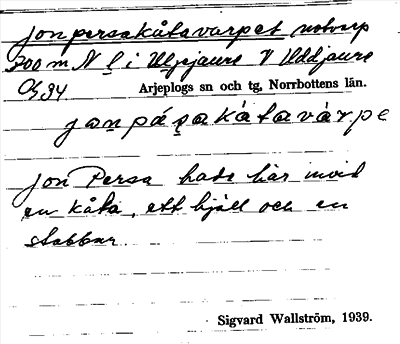 Jonpersakåtavarpet notvarp
300 m N l i Uljejaure V Uddjaure
Arjeplogs sn och tg, Norrbottens län.
jon pǻṣa kåtavàrpe
Jon Persa hade här invid
en kåta, ett hjäll och en
stabbur.
Sigvard Wallström, 1939.